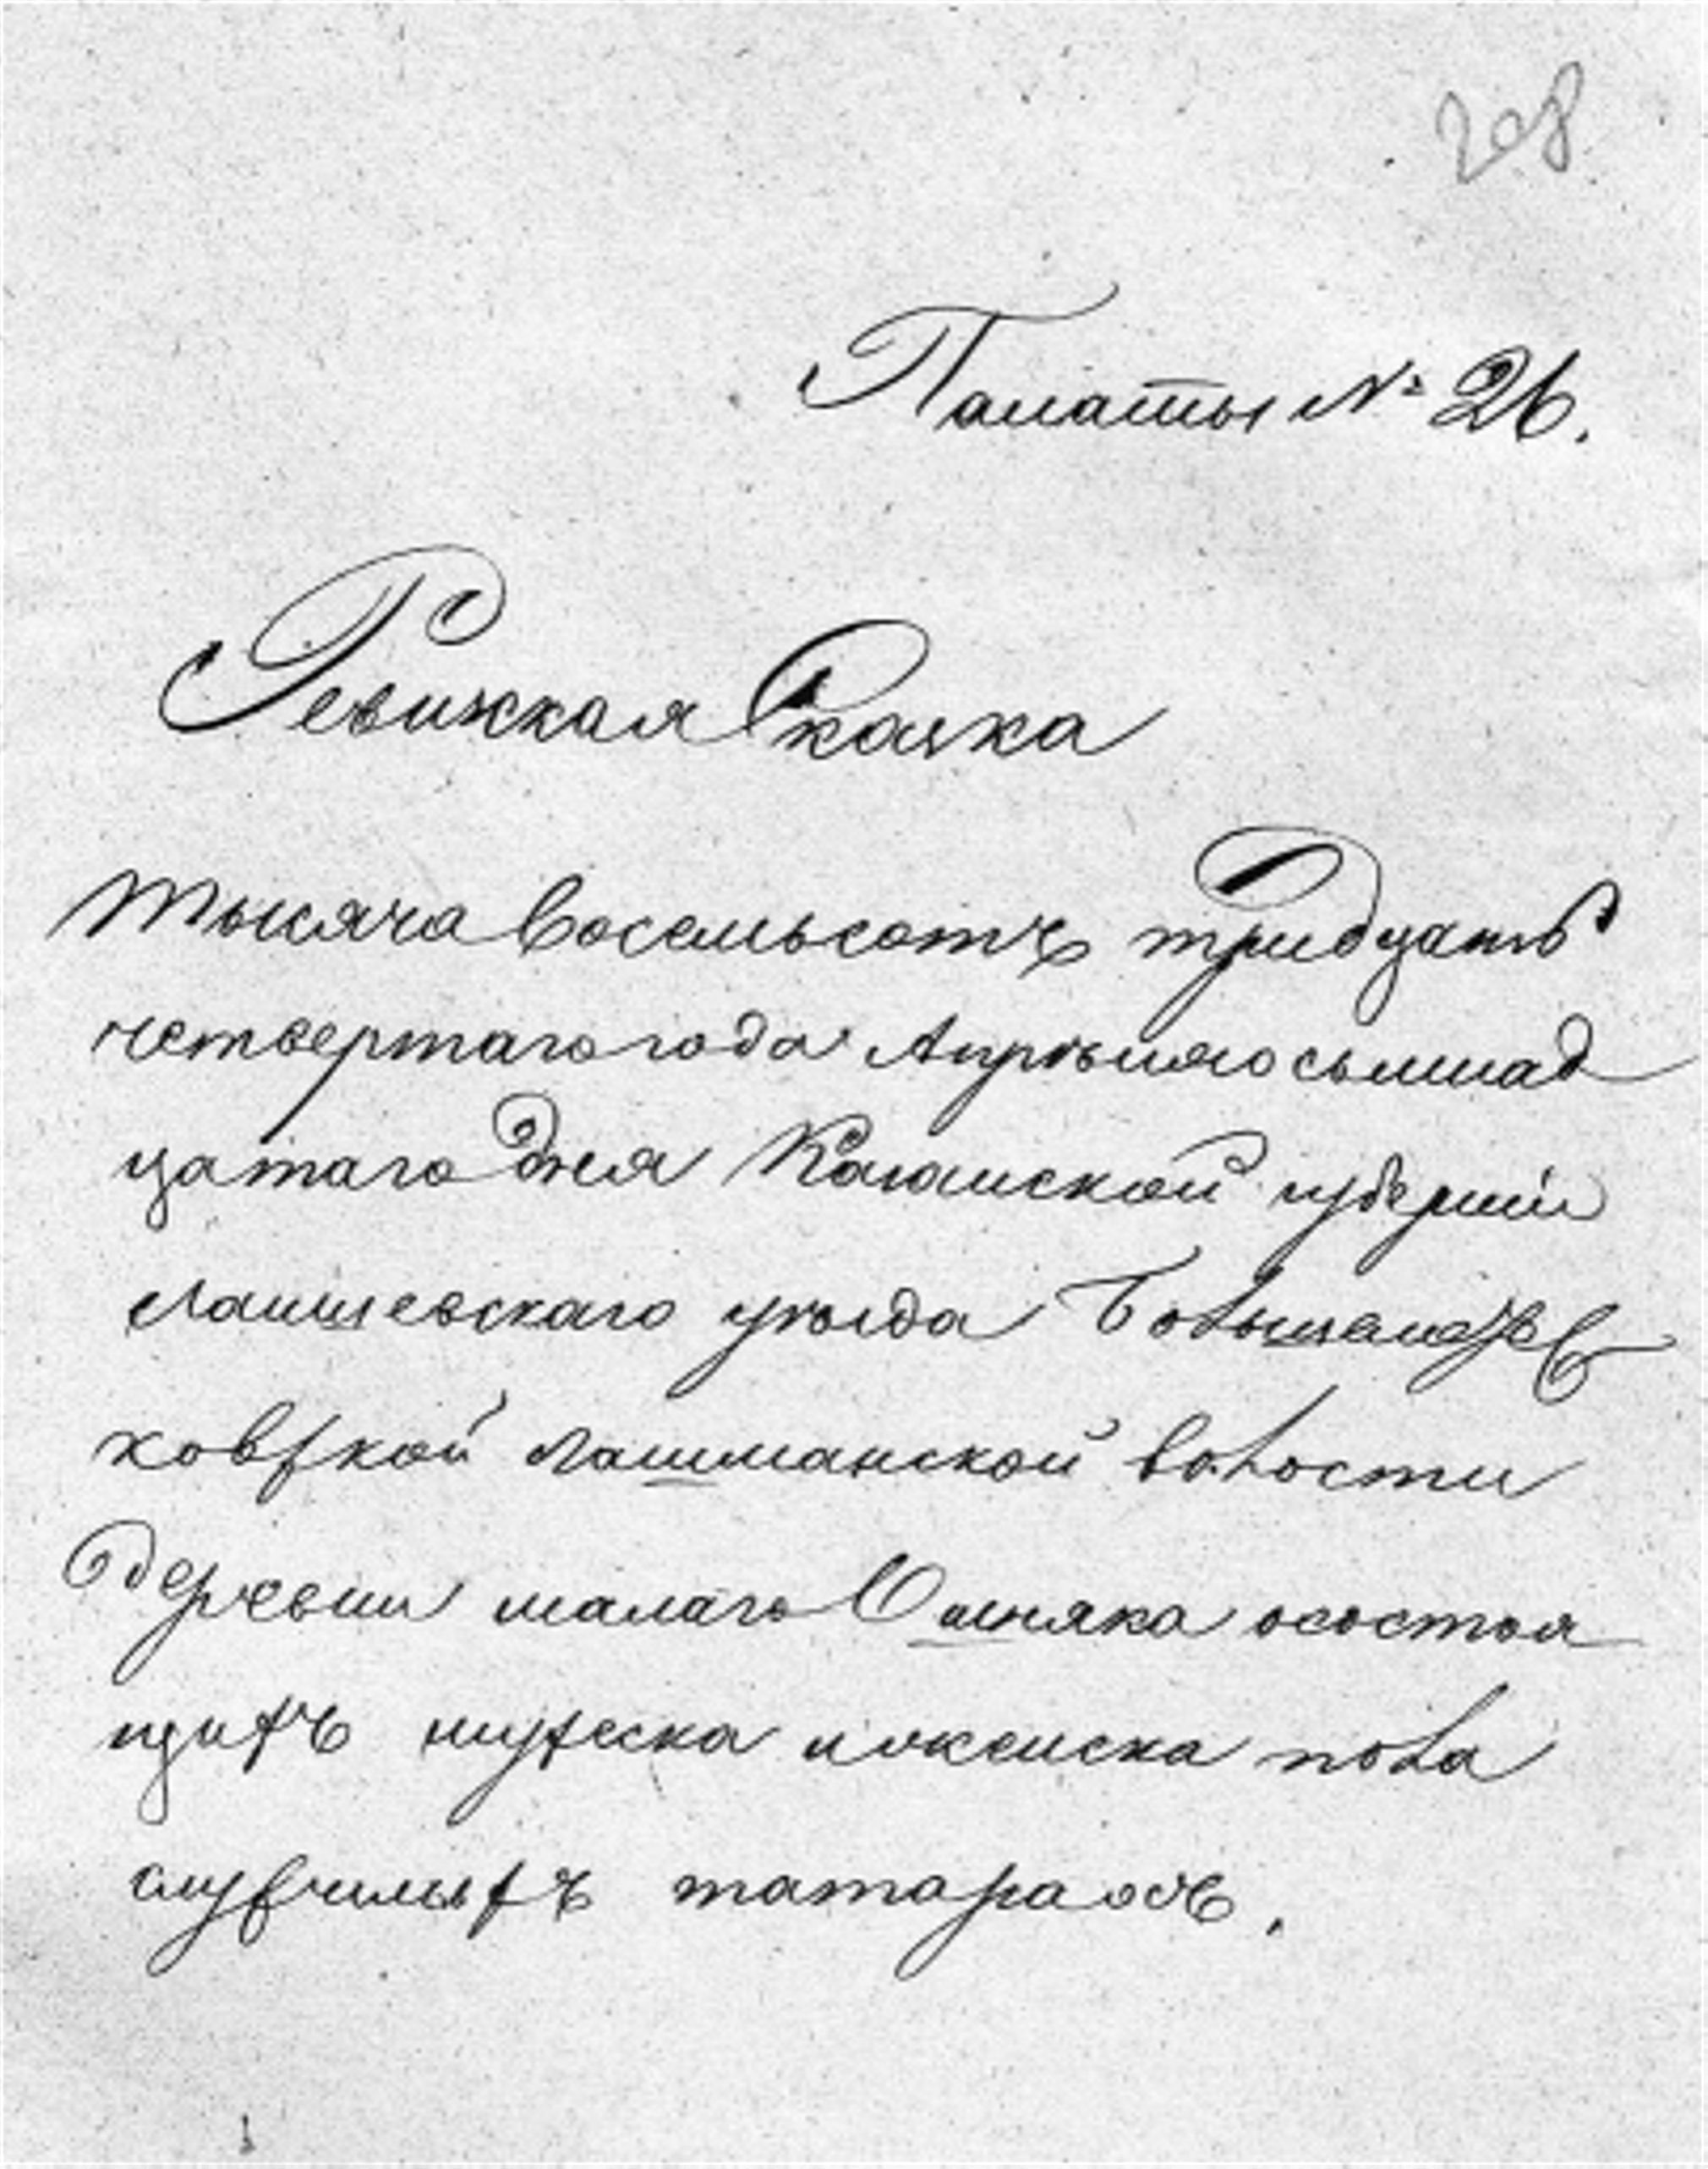 208
Палаты № 26.
Ревижская Скаска
тысяча восемьсотъ тридцать
четвертаго года Апрѣля осьмнад
цатаго дня Казанской губернии
лаишевскаго уѣзда
ковской лашманской волости
деревни малаго Ошняка осостоя
щихъ мужеска иженска пола
служилыхъ татараовъ.